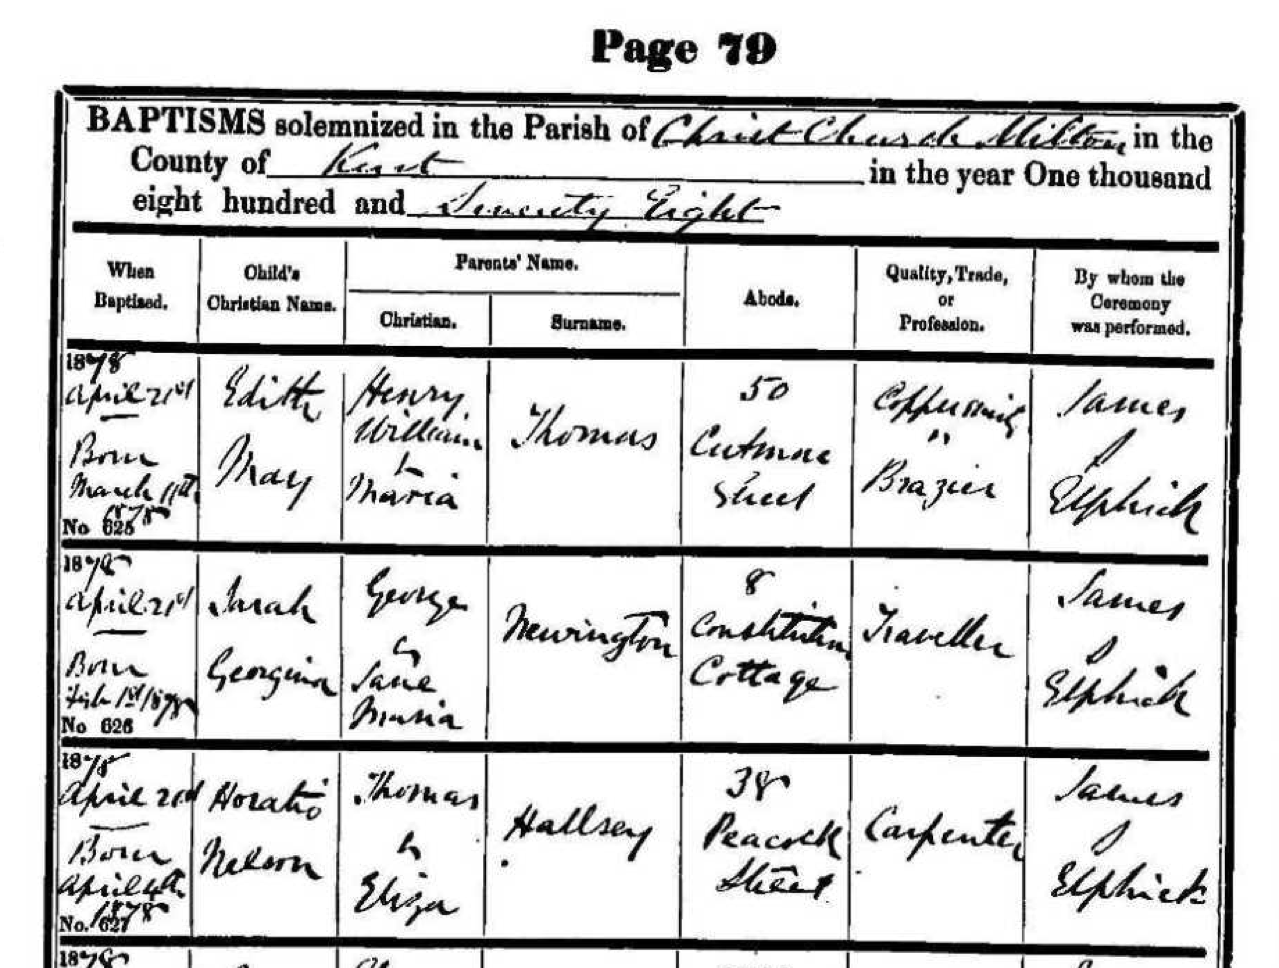 Page 79
BAPTISMS solemnized in the Parish of Christ Church Milton in the
County of Kent in the year One thousand
eight hundred and Seventy Eight
When Baptised.
Child's Christian Name.
Parents' Name.
Christian.
Surname.
Abode.
Quality, Trade, or Profession.
By whom the Ceremony was performed.
1878
April 21st
Born
March 11th
1878
No 625
Edith
May
Henry
William
&
Maria
Thomas
50
Street
Coppersmith
"
Brazier
James
Elphick
1878
April 21st
Born
Feb 1st 1878
No 626
Sarah
Georgina
George
&
Jane
Maria
Newington
8
Constitution
Cottage
Traveller
James
Elphick
1878
April 21st
Born
April 4th
1878
No. 627
Horatio
Nelson
Thomas
&
Eliza
Hallsey
38
Peacock
Street
Carpenter
James
Elphick
1878